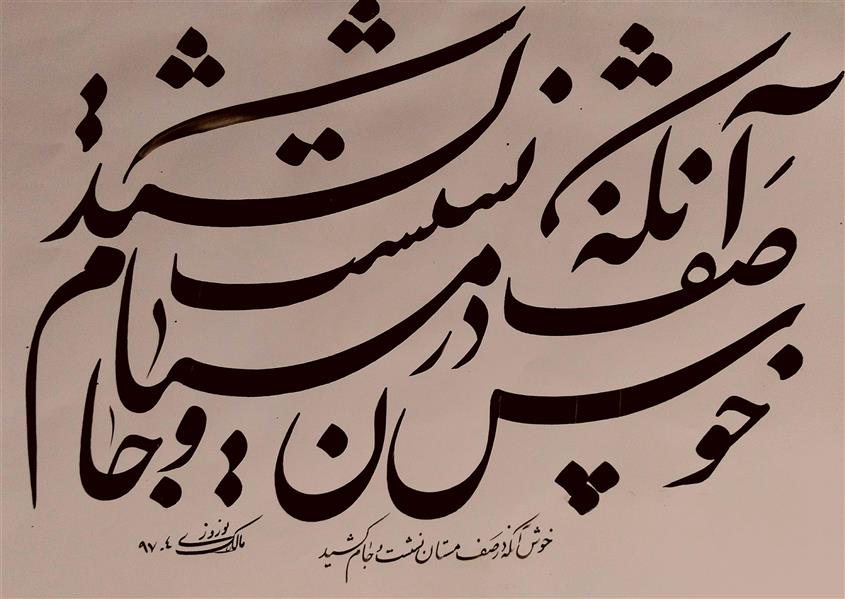 خوش آنکه در صف مستان نشست و جام کشید
خوش آنکه در صف مستان نشست و جام کشید
مالک نوروزی ۹۷۰۴